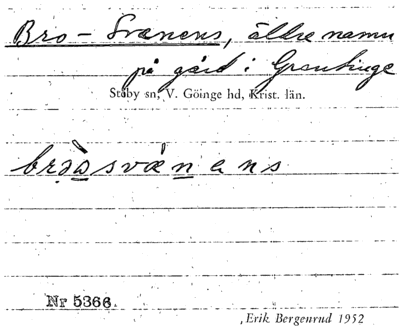 Bro-Svanens, äldre namn
på gård i Grantinge
Stoby sn, V. Göinge hd, Krist. län.
Nr 5366.
Erik Bergenrud 1952